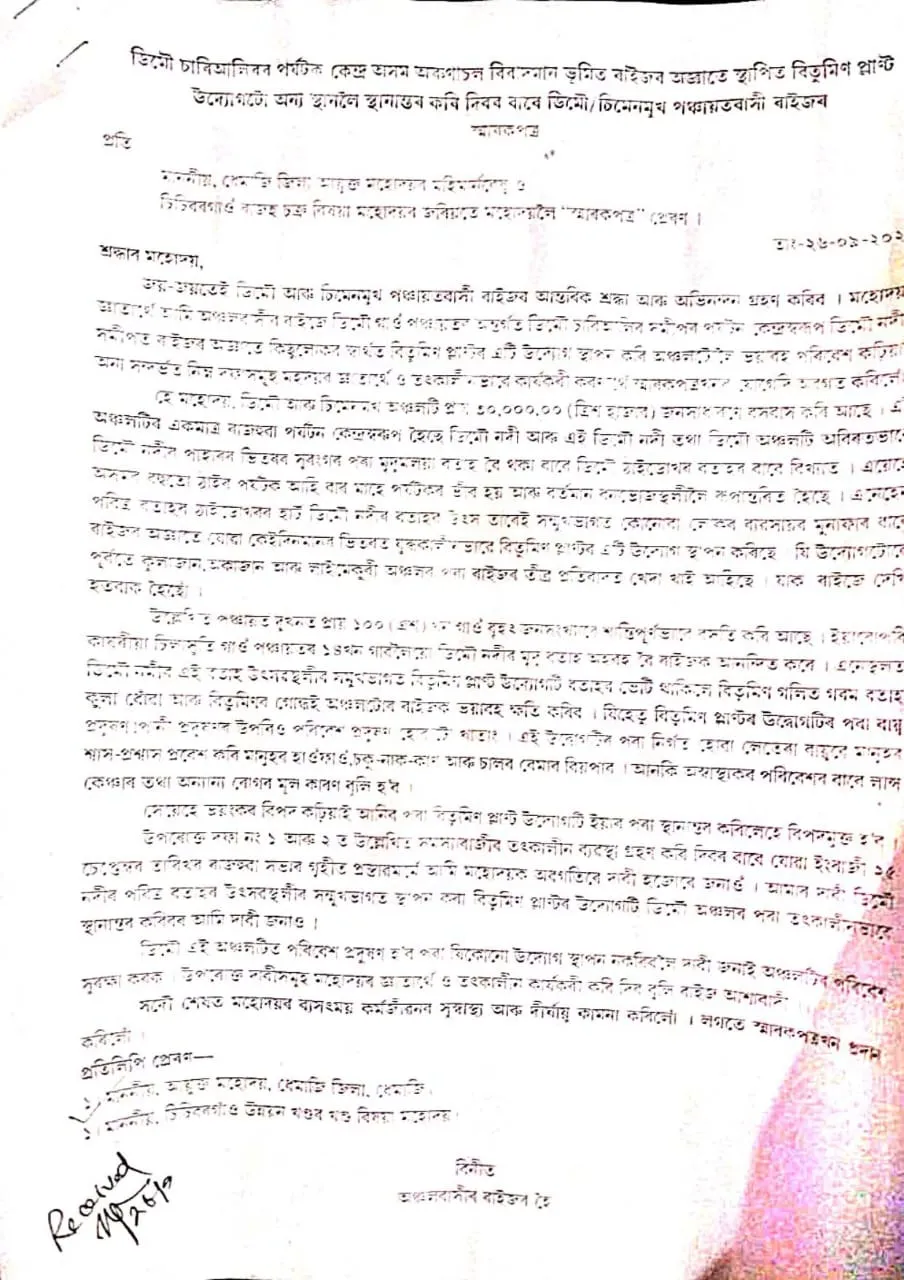 ডিমৌ চাৰিআলিৰ পৰ্যটক কেন্দ্ৰ অসম অৰুণাচল বিবাদমান ভূমিত ৰাইজৰ অজ্ঞাতে স্থাপিত বিতুমিণ প্লাণ্ট
উদ্যোগটো অন্য স্থানলৈ স্থানান্তৰ কৰি দিবৰ বাবে ডিমৌ/চিমেনমুখ পঞ্চায়তবাসী ৰাইজৰ
স্মাৰকপত্ৰ
প্ৰতি
মাননীয়, ধেমাজি জিলা আয়ুক্ত মহোদয়ৰ
চিচিবৰগাঁও ৰাজহ চক্ৰ বিষয়া মহোদয়ৰ জৰিয়তে মহোদয়লৈ "স্মাৰকপত্ৰ" প্ৰেৰণ ।
তাং-২৬-০৯-২০২
শ্ৰদ্ধাৰ মহোদয়,
জয়-জয়তেই ডিমৌ আৰু চিমেনমুখ পঞ্চায়তবাসী ৰাইজৰ আন্তৰিক শ্ৰদ্ধা আৰু অভিনন্দন গ্ৰহণ কৰিব । মহোদয়
জ্ঞাতাৰ্থে আমি অঞ্চলবাসীৰ ৰাইজে ডিমৌ গাওঁ পঞ্চায়তৰ অন্তৰ্গত ডিমৌ চাৰিআলিৰ সমীপৰ পৰ্যটন কেন্দ্ৰস্বৰূপ ডিমৌ নদী
সমীপত ৰাইজৰ অজ্ঞাতে কিছুলোকৰ স্বাৰ্থত বিতুমিণ প্লাণ্টৰ এটি উদ্যোগ স্থাপন কৰি অঞ্চলটোলৈ ভয়াবহ পৰিবেশ কঢ়িয়া
অন্য সন্দৰ্ভত নিম্ন দফাসমূহ মহদয়ৰ জ্ঞাতাৰ্থে ও তৎকালীনভাৱে কাৰ্যকৰী অৱগত কৰিলোঁ
হে মহোদয়, ডিমৌ আৰু চিমেনমুখ অঞ্চলটি প্ৰায় ৩০,০০০.০০ (ত্ৰিশ হাজাৰ) জনসাধাৰণে বসবাস কৰি আছে । এ
অঞ্চলটিৰ একমাত্ৰ ৰাজহুৱা পৰ্যটন কেন্দ্ৰস্বৰূপ হৈছে ডিমৌ নদী আৰু এই ডিমৌ নদী তথা ডিমৌ অঞ্চলটি অবিৰতভাৱে
ডিমৌ নদীৰ পাহাৰৰ ভিতৰৰ সুৰংগৰ পৰা মৃদুমলয়া বতাহ বৈ থকা বাবে ডিমৌ বতাহৰ বাবে বিখ্যাত । এয়েহে
অসমৰ বহুতো ঠাইৰ পৰ্যটক আহি বাৰ মাহে পৰ্যটকৰ ভীৰ হয় আৰু বৰ্তমান বনভোজস্থলীলৈ ৰূপান্তৰিত হৈছে । এনেহেন
পবিত্ৰ বতাহৰ ডিমৌ নদীৰ বতাহৰ উৎস তাৰেই সন্মুখভাগত কোনোবা লোকৰ ব্যৱসায়ৰ মুনাফাৰ বাবে
ৰাইজৰ অজ্ঞাতে যোৱা কেইদিনমানৰ ভিতৰত যুদ্ধকালীনভাৱে বিতুমিণ প্লাণ্টৰ এটি উদ্যোগ স্থাপন কৰিছে যি উদ্যোগটোৱে
পূৰ্বতে কুলাজান, অকাজান আৰু লাইমেকুৰী অঞ্চলৰ পৰা ৰাইজৰ তীব্ৰ প্ৰতিবাদত খেদা খাই আহিছে । যাক ৰাইজে দেখি
হতবাক হৈছোঁ ।
উল্লেখিত পঞ্চায়ত দুখনত প্ৰায় ১০০ (এশ) খন গাওঁ বৃহৎ জনসংখ্যাৰে শান্তিপূৰ্ণভাৱে বসতি কৰি আছে । ইয়াৰোপৰি
কাষৰীয়া চিলাসুঁতি গাওঁ পঞ্চায়তৰ ১৪খন গাৱলৈয়ো ডিমৌ নদীৰ মৃদু বতাহ অহৰহ বৈ ৰাইজক আনন্দিত কৰে । এনেস্থলত
ডিমৌ নদীৰ এই বতাহ উৎসৱস্থলীৰ সন্মুখভাগত বিতুমিণ প্লাণ্ট উদ্যোগটি বতাহৰ ভেটি থাকিলে বিতুমিণ গলিত গৰম বতাহ
কলা ধোঁৱা আৰু বিতুমিণৰ গোন্ধই অঞ্চলটোৰ ৰাইজক ভয়াবহ ক্ষতি কৰিব । যিহেতু বিতুমিণ প্লাণ্টৰ উদ্যোগটিৰ পৰা বায়ু
প্ৰদূষণ, পানী প্ৰদূষণৰ উপৰিও পৰিবেশ প্ৰদূষণ হোৱাটো খাতাং । এই উদ্যোগটিৰ পৰা নিৰ্গত হোৱা লেতেৰা বায়ুৱে মানুহৰ
শ্বাস-প্ৰশ্বাস প্ৰবেশ কৰি মানুহৰ হাওঁফাওঁ, চকু-নাক-কাণ আৰু ছালৰ বেমাৰ বিয়পাব । আনকি অস্বাস্থ্যকৰ পৰিবেশৰ বাবে লাংগ্স
কেঞ্চাৰ তথা অন্যান্য ৰোগৰ মূল কাৰণ বুলি হ'ব ।
সেয়েহে ভয়ংকৰ বিপদ কঢ়িয়াই আনিব পৰা বিতুমিণ প্লাণ্ট উদ্যোগটি ইয়াৰ পৰা স্থানান্তৰ কৰিলেহে বিপদমুক্ত হ'ব
উপৰোক্ত দফা নং ১ আৰু ২ ত উল্লেখিত সমস্যাৰাজীৰ তৎকালীন ব্যৱস্থা গ্ৰহণ কৰি দিবৰ বাবে যোৱা ইংৰাজী ২৫
চেপ্তেম্বৰ তাৰিখৰ ৰাজহুৱা সভাৰ গৃহীত প্ৰস্তাৱমৰ্মে আমি মহোদয়ক অৱগতিৰে দাবী হজোৰে জনাওঁ । আমাৰ দাবী ডিমৌ
নদীৰ পবিত্ৰ বতাহৰ উৎসৱস্থলীৰ সন্মুখভাগত স্থাপন কৰা বিতুমিণ প্লাণ্টৰ উদ্যোগটি ডিমৌ অঞ্চলৰ পৰা তৎকালীনভাৱে
স্থানান্তৰ কৰিবৰ আমি দাবী জনাওঁ ।
ডিমৌ এই অঞ্চলটিত পৰিবেশ প্ৰদূষণ হ'ব পৰা যিকোনো উদ্যোগ স্থাপন নকৰিবলৈ দাবী জনাই অঞ্চলটিৰ পৰিবেশ
সুৰক্ষা কৰক । উপৰোক্ত দাবীসমূহ মহোদয়ৰ জ্ঞাতাৰ্থে ও তৎকালীন কাৰ্যকৰী কৰি দিব বুলি ৰাইজ আশাবাদী ।
সদৌ শেষত মহোদয়ৰ ব্যস্তময় কৰ্মজীৱনৰ সুস্বাস্থ্য আৰু দীৰ্ঘায়ু কামনা কৰিলোঁ । লগতে স্মাৰকপত্ৰখন প্ৰদান
কৰিলোঁ ।
প্ৰতিলিপি প্ৰেৰণ—
১) মাননীয়, আয়ুক্ত মহোদয়, ধেমাজি জিলা, ধেমাজি ।
২) মাননীয়, চিচিবৰগাঁও উন্নয়ন খণ্ডৰ খণ্ড বিষয়া মহোদয় ।
বিনীত
অঞ্চলবাসীৰ ৰাইজৰ হৈ
Received